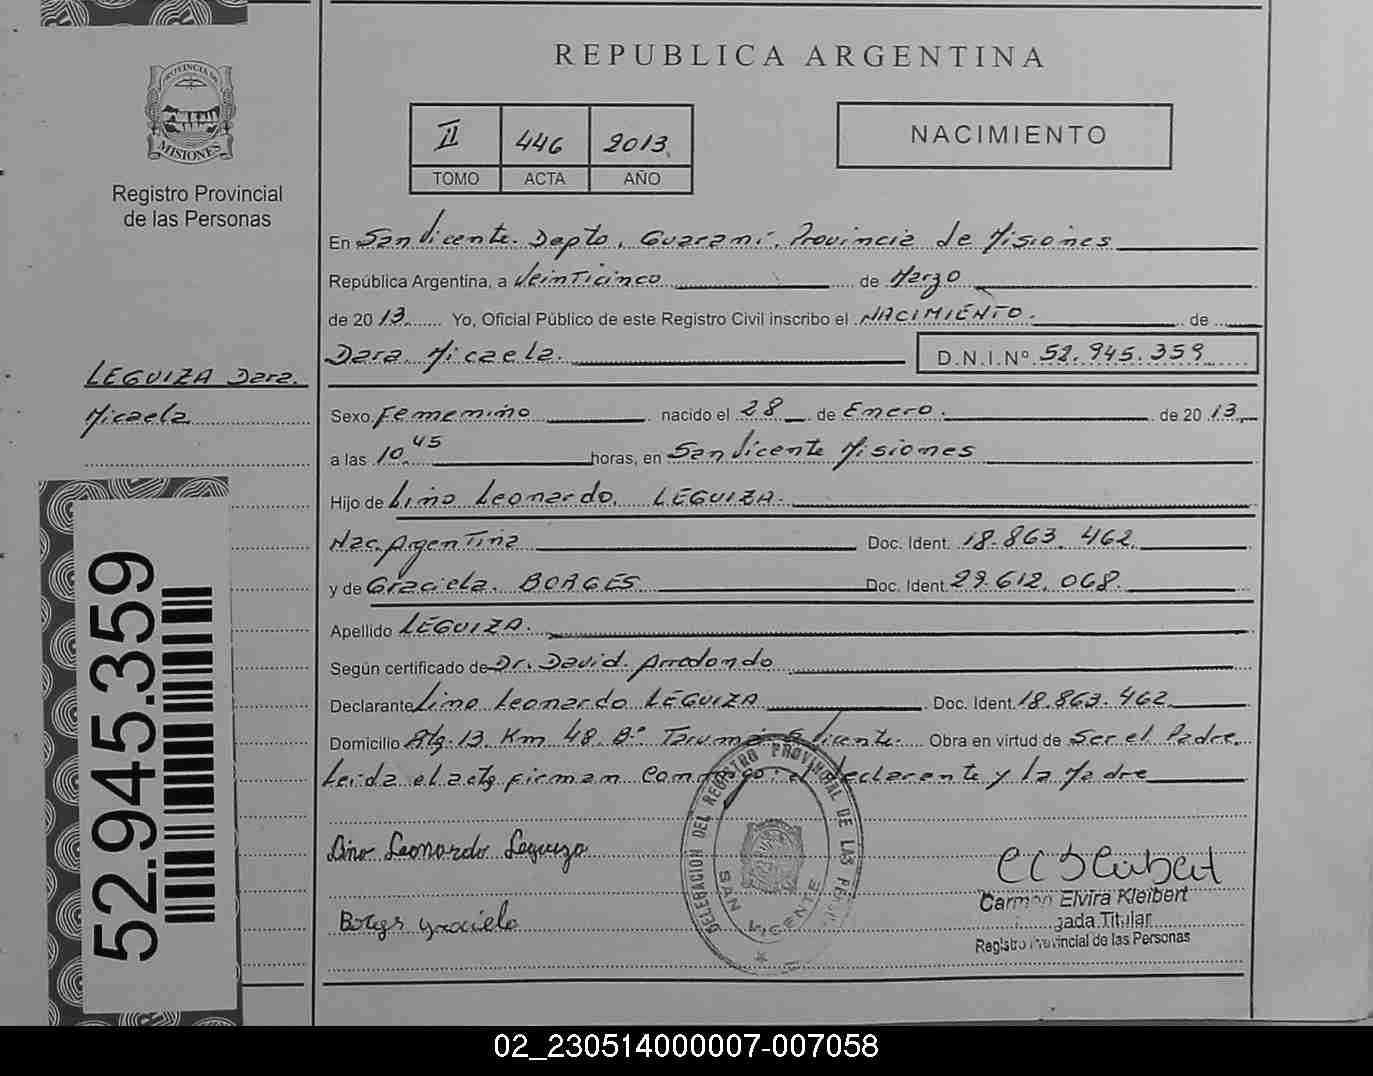 REPUBLICA ARGENTINA
PROVINCIA DE
MISIONES
Registro Provincial
de las Personas
II 446 2013
TOMO ACTA AÑO
NACIMIENTO
En San Vicente. Depto. Guaraní. Provincia de Misiones
República Argentina, a Veinticinco de Marzo
de 20 13 Yo, Oficial Público de este Registro Civil inscribo el NACIMIENTO. de
Dara Micaela. D.N.I.Nº 52.945.359
LEGUIZA Dara.
Micaela
Sexo Femenino nacido el 28 de Enero. de 20 13
a las 10.45 horas, en San Vicente Misiones
Hijo de Lino Leonardo. LEGUIZA.
Nac. Argentina Doc. Ident. 18.863.462
y de Graciela. BORGES Doc. Ident. 29.612.068.
Apellido LEGUIZA.
Según certificado de Dr. David. Arredondo
Declarante Lino Leonardo LEGUIZA Doc. Ident. 18.863.462
Domicilio Km 48. Bº Taruma S. Vicente. Obra en virtud de Ser el Padre.
Leída el acta firman conmigo: el declarante y la Madre
Lino Leonardo Leguiza
Borges Graciela
DELEGACION DEL REGISTRO PROVINCIAL DE LAS
SAN VICENTE
Carmen Elvira Kleibert
Titular
Registro Provincial de las Personas
52.945.359
02_230514000007-007058